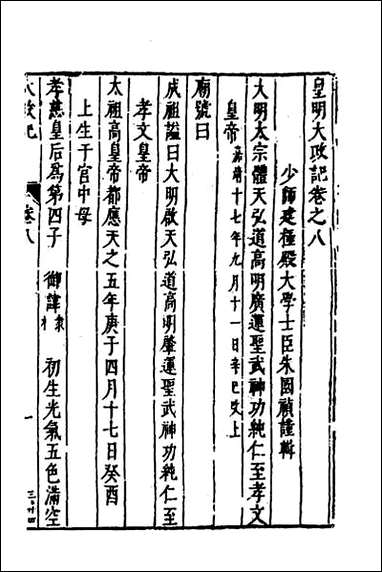 皇明大政記卷之八
少師建極殿大學士臣朱國禎謹輯
大明太宗體天弘道高明廣運聖武神功純仁至孝文
皇帝嘉靖十七年九月十一日辛巳改上
廟號曰
成祖謚曰大明啟天弘道高明肇運聖武神功純仁至
孝文皇帝
太祖高皇帝都應天之五年庚子四月十七日癸酉
上生于宮中母
孝慈皇后為第四子 御諱 初生光氣五色滿空
大政記 卷八 一